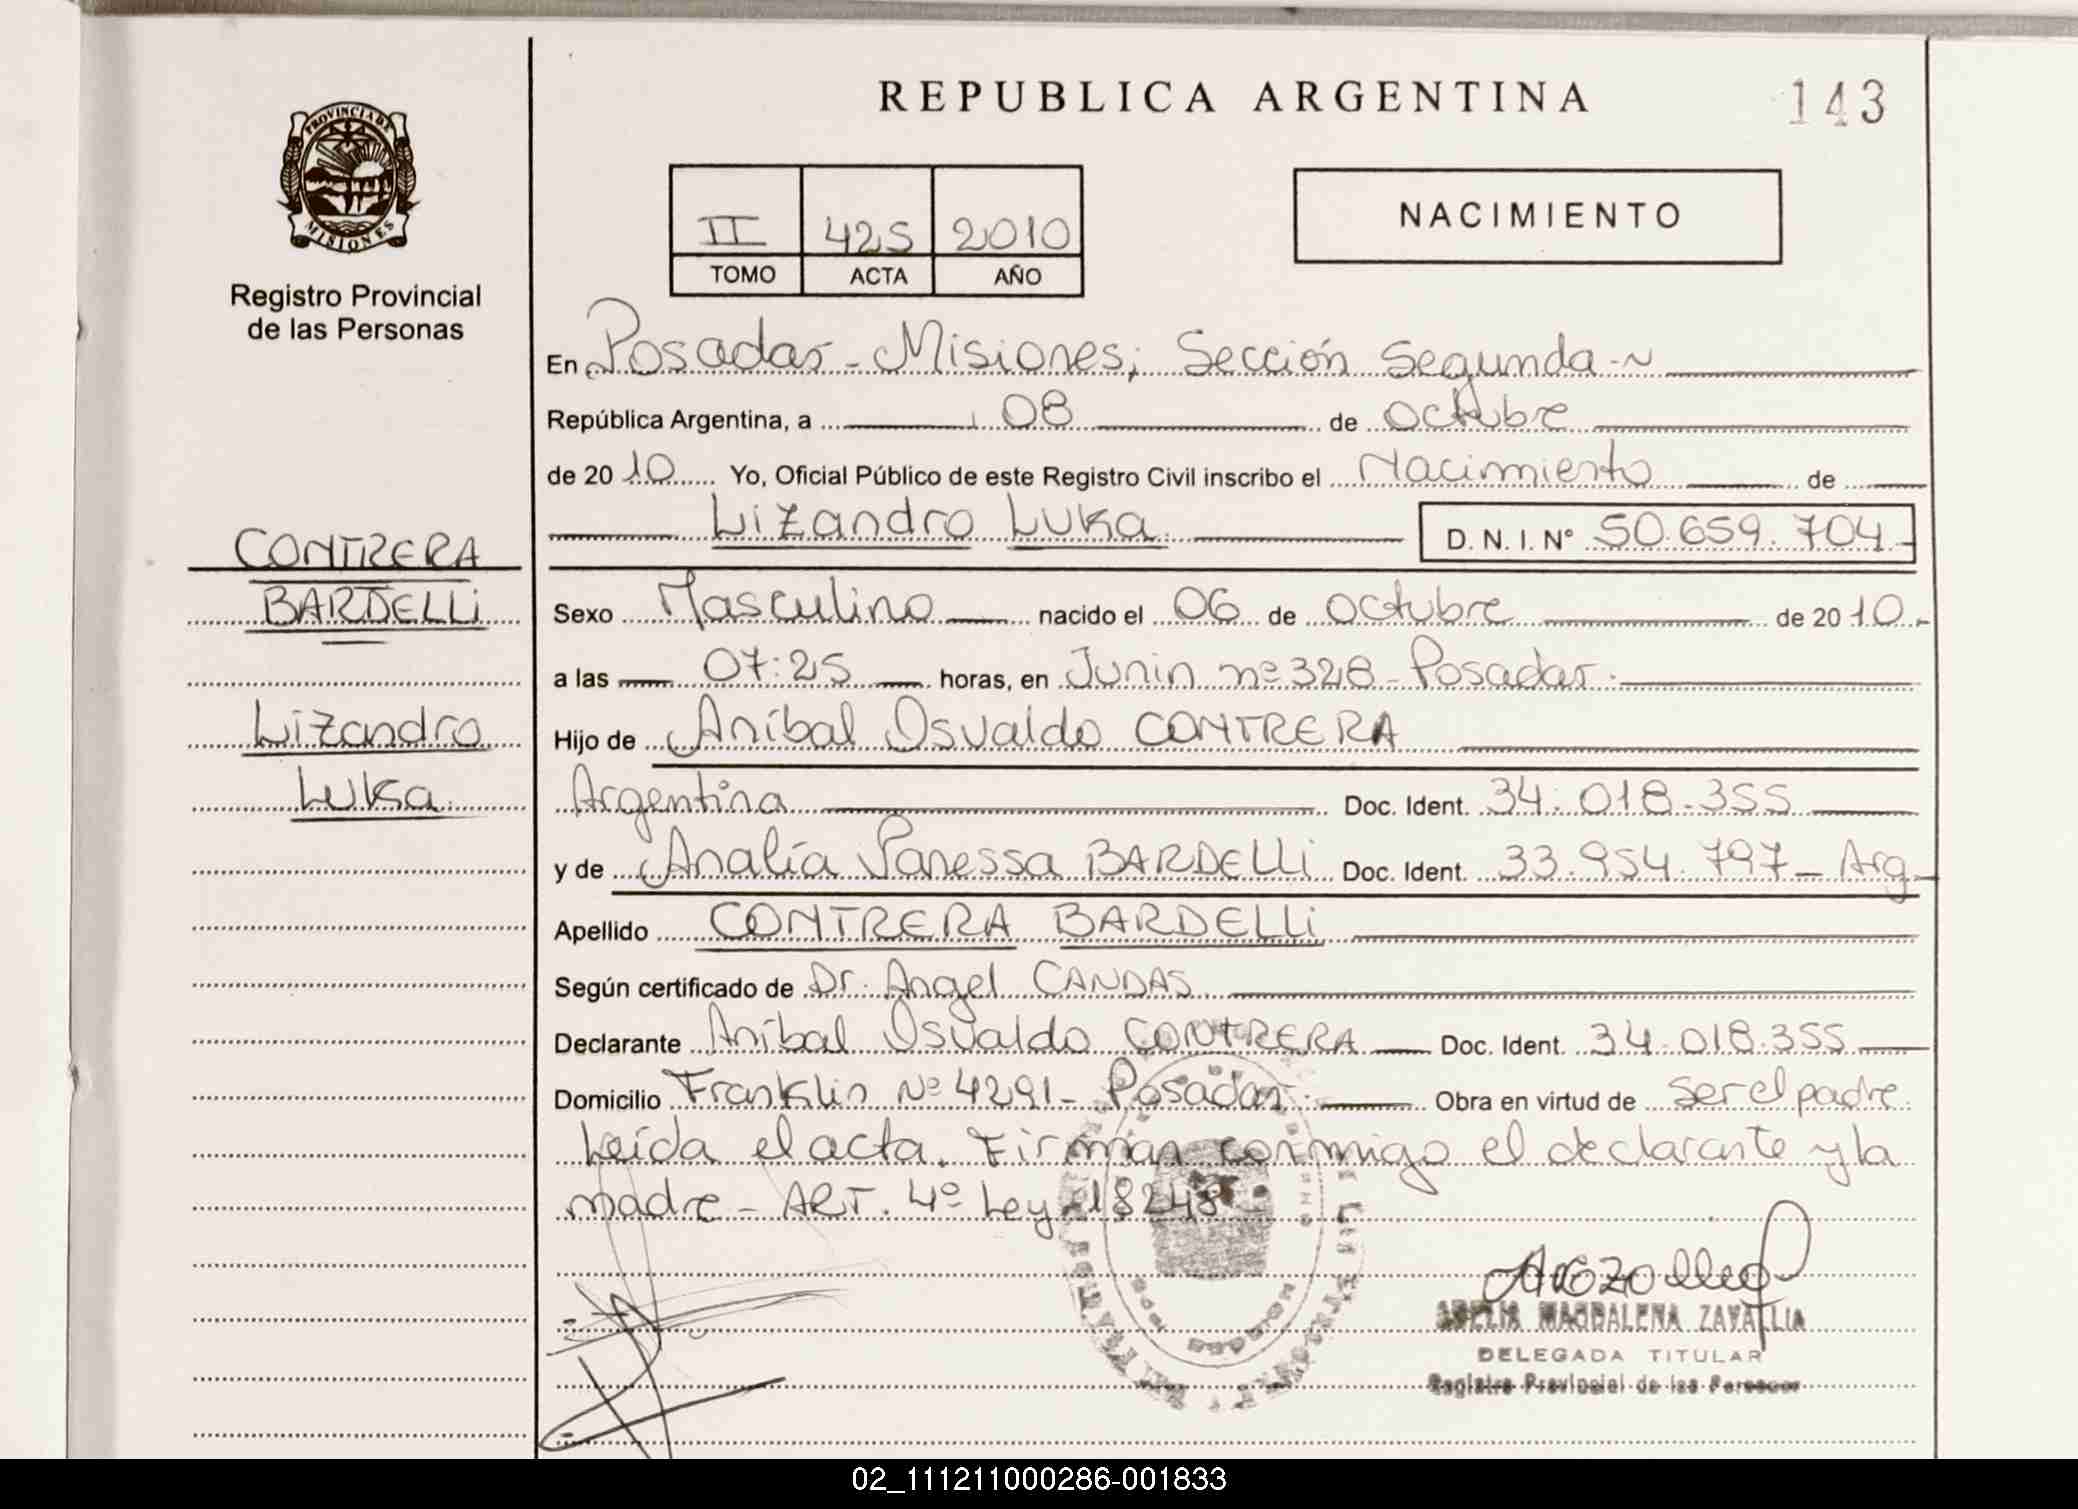 REPUBLICA ARGENTINA
143
PROVINCIA DE
MISIONES
Registro Provincial
de las Personas
II 425 2010
TOMO ACTA AÑO
NACIMIENTO
En Posadas - Misiones; Sección Segunda
República Argentina, a 08 de Octubre
de 2010 Yo, Oficial Público de este Registro Civil inscribo el Nacimiento de
Lizandro Luka D. N. I. N° 50.659.704-
CONTRERA
BARDELLi
Lizandro
Luka
Sexo Masculino nacido el 06 de Octubre de 2010.-
a las 07:25 horas, en Junin nº 328 - Posadas.
Hijo de Aníbal Osvaldo CONTRERA
Argentina Doc. Ident. 34.018.355
y de Analía Vanessa BARDELLi Doc. Ident. 33.954.797 - Arg-
Apellido CONTRERA BARDELLi
Según certificado de Dr. Angel CANDAS
Declarante Aníbal Osvaldo CONTRERA Doc. Ident. 34.018.355
Domicilio Franklin Nº 4291 - Posadas. Obra en virtud de ser el padre.
Leída el acta. Firman conmigo el declarante y la
madre - ART. 4º Ley 18248
ADELIA MAGDALENA ZAVALLIA
DELEGADA TITULAR
Registro Provincial de las Personas
02_111211000286-001833